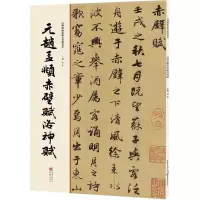 赤壁賦
壬戌之秋七月既望蘇子與客泛
舟遊于赤壁之下清風徐來水
波不興舉酒屬客誦明月之詩
歌窈窕之章少焉月出於東山
元趙孟頫赤壁賦洛神賦